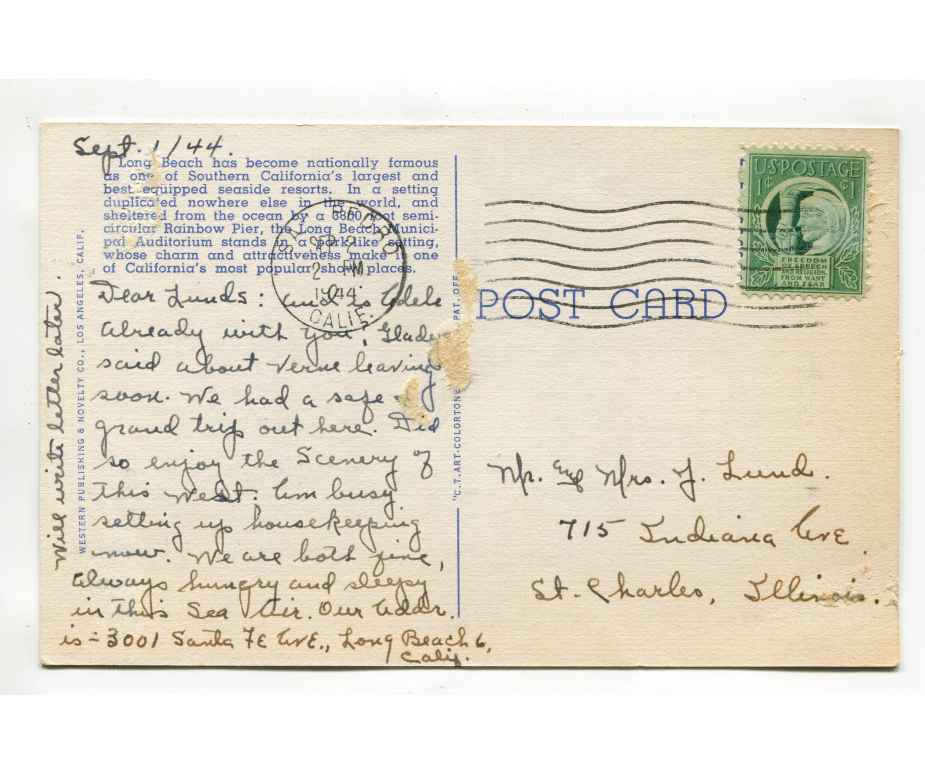 Sept. 1/44.
Long Beach has become nationally famous
as one of Southern California's largest and
best equipped seaside resorts. In a setting
duplicated nowhere else in the world, and
sheltered from the ocean by a 3800 foot semi-
circular Rainbow Pier, the Long Beach Munici-
pal Auditorium stands in a park-like setting,
whose charm and attractiveness make it one
of California's most popular show places.
Dear Lunds: and is Adele
already with you, Gladys
said about Verne leaving
soon. We had a safe &
grand trip out here. Did
so enjoy the Scenery of
this West. Am busy
setting up housekeeping
now. We are both fine,
always hungry and sleepy
in this Sea Air. Our Addr.
is - 3001 Santa Fe Ave., Long Beach 6,
Calif.
Will write letter later
WESTERN PUBLISHING & NOVELTY CO., LOS ANGELES, CALIF.
"C.T. ART-COLORTONE PAT. OFF.
SAN PEDRO
SEP 2
2 PM
1944
CALIF.
POST CARD
U.S. POSTAGE
1¢ 1
FREEDOM
OF SPEECH
AND RELIGION,
FROM WANT
AND FEAR
Mr. & Mrs. J. Lund.
715 Indiana Ave
St. Charles, Illinois.